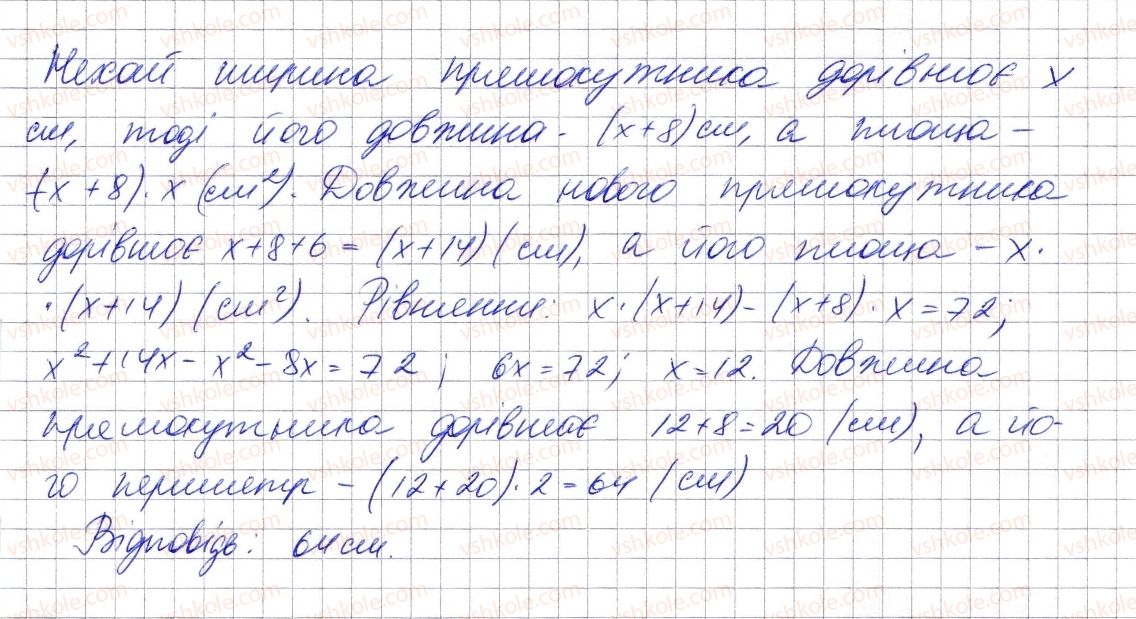 Нехай ширина прямокутника дорівнює x
см, тоді його довжина - (x+8) см, а площа -
(x+8)·x (см²). Довжина нового прямокутника
дорівнює x+8+6 = (x+14) (см), а його площа - x·
·(x+14) (см²). Рівняння: x·(x+14)-(x+8)·x=72;
x²+14x-x²-8x=72; 6x=72; x=12. Довжина
прямокутника дорівнює 12+8=20 (см), а йо-
го периметр - (12+20)·2=64 (см)
Відповідь: 64 см.